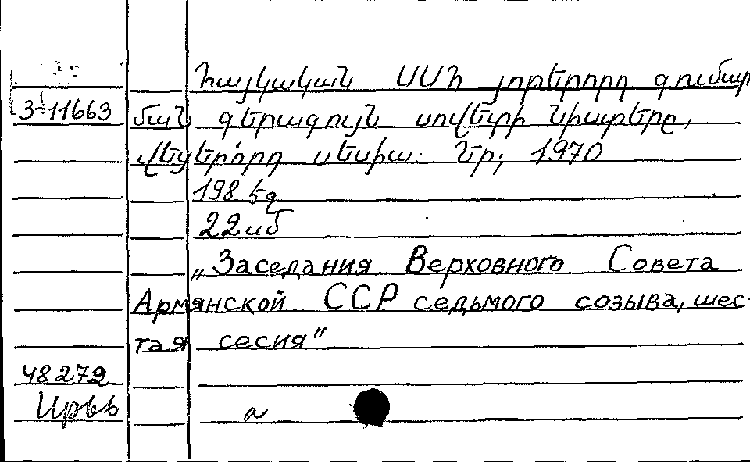 Հայկական ՍՍՀ յոթերորդ գումար
3-11663 ման գերագույն սովետի նիստերը,
վեցերորդ սեսիա: Եր, 1970
198 էջ
22 սմ
„Заседания Верховного Совета
Армянской ССР седьмого созыва, шес-
тая сесия"
48272